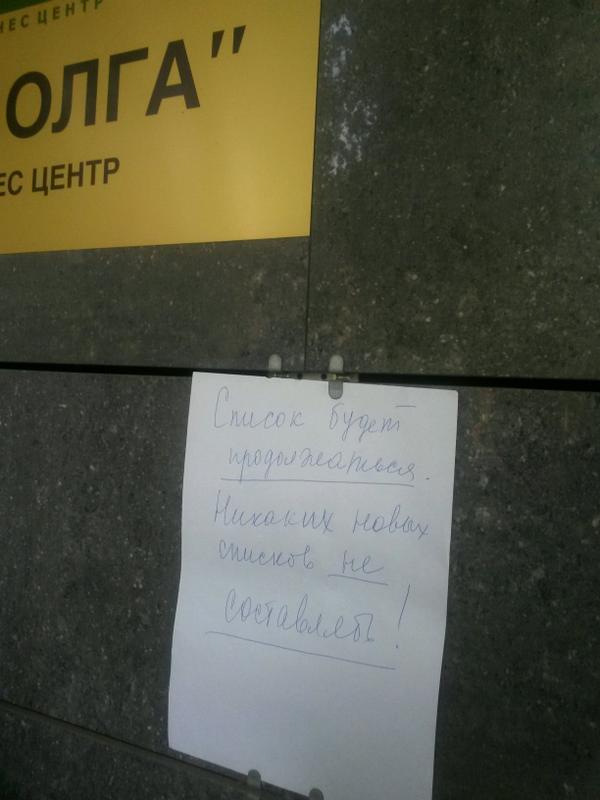 НЕС ЦЕНТР
ОЛГА"
ЕС ЦЕНТР
Список будет
продолжаться.
Никаких новых
списков не
составлять!